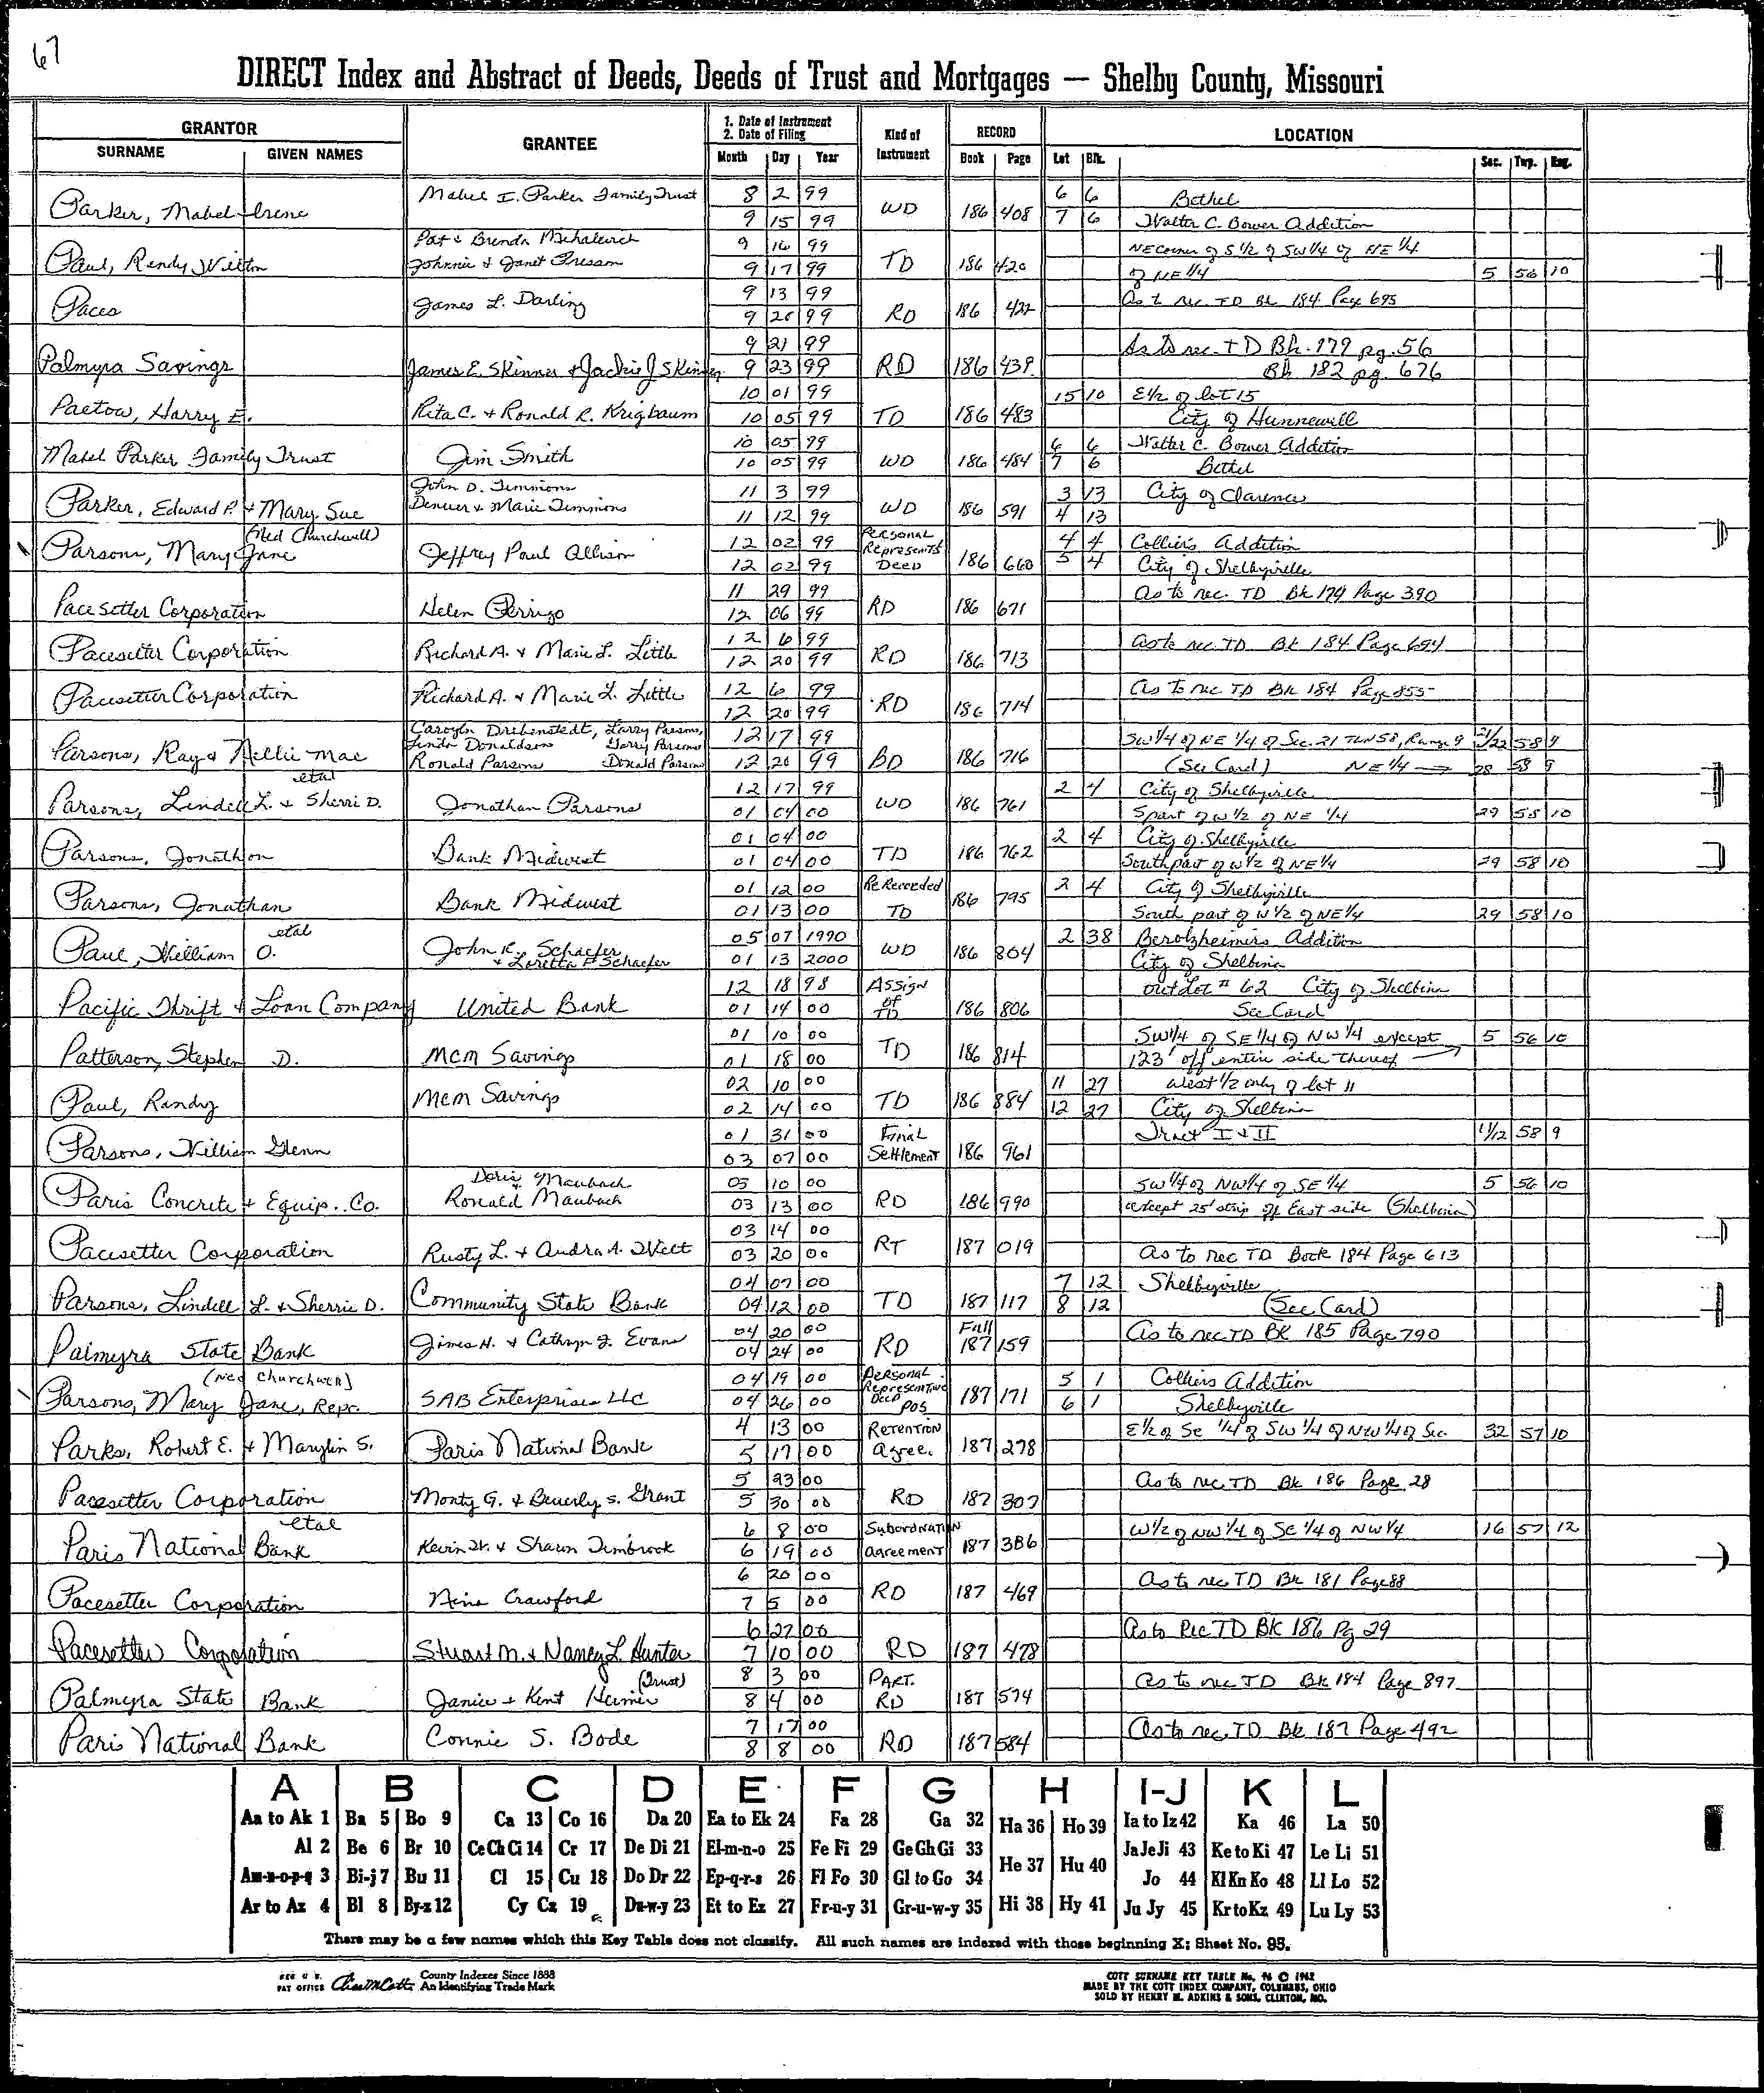 67
DIRECT Index and Abstract of Deeds, Deeds of Trust and Mortgages — Shelby County, Missouri
GRANTOR GRANTEE 1. Date of Instrument 2. Date of Filing Kind of Instrument RECORD LOCATION
SURNAME GIVEN NAMES Month Day Year Book Page Lot Blk. Sec. Twp. Rng.
Mabel I. Parker Family Trust 8 2 99 6 6 Bethel
Parker, Mabel Irene 9 15 99 WD 186 408 7 6 Walter C. Bower Addition
Pat & Brenda Mihalevich 9 16 99 NE Corner of S 1/2 of SW 1/4 of NE 1/4
Paul, Randy Wilton Johnnie & Janet Gresam 9 17 99 TD 186 420 of NE 1/4 5 56 10
Paces James L. Darling 9 13 99 As to rec TD Bk 184 Page 695
9 20 99 RD 186 422
9 21 99 As to rec. TD Bk. 179 pg. 56
Palmyra Savings James E. Skinner & Jackie J Skinner 9 23 99 RD 186 439 Bk 182 pg. 676
10 01 99 15 10 E 1/2 of lot 15
Paetow, Harry E. Rita C. & Ronald R. Krigbaum 10 05 99 TD 186 483 City of Hunnewell
10 05 99 6 6 Walter C. Bower Addition
Mabel Parker Family Trust Jim Smith 10 05 99 WD 186 484 7 6 Bethel
John D. Timmons 11 3 99 3 13 City of Clarence
Parker, Edward P. & Mary Sue Denver & Marie Timmons 11 12 99 WD 186 591 4 13
(Ned Churchwell) 12 02 99 Personal Represents Deed 4 4 Collier's Addition
Parsons, Mary Jane Jeffrey Paul Allison 12 02 99 186 660 5 4 City of Shelbyville
11 29 99 As to rec. TD Bk 179 Page 390
Pacesetter Corporation Helen Perrigo 12 06 99 RD 186 671
12 6 99 As to rec TD Bk 184 Page 694
Pacesetter Corporation Richard A. & Marie L. Little 12 20 99 RD 186 713
12 6 99 As to rec TD Bk 184 Page 855
Pacesetter Corporation Richard A. & Marie L. Little 12 20 99 RD 186 714
Carolyn Dribenstedt, Larry Parsons,
Linda Donaldson Gary Parsons 12 17 99 SW 1/4 of NE 1/4 of Sec. 21 Twn 58, Range 9 21/22 58 9
Parsons, Ray & Nellie Mae Ronald Parsons Donald Parsons 12 20 99 BD 186 716 (See Card) NE 1/4 28 58 9
etal 12 17 99 2 4 City of Shelbyville
Parsons, Lindell L. & Sherri D. Jonathan Parsons 01 04 00 WD 186 761 S part of W 1/2 of NE 1/4 29 58 10
01 04 00 2 4 City of Shelbyville
Parsons, Jonathon Bank Midwest 01 04 00 TD 186 762 South part of W 1/2 of NE 1/4 29 58 10
01 12 00 ReRecorded 2 4 City of Shelbyville
Parsons, Jonathan Bank Midwest 01 13 00 TD 186 795 South part of W 1/2 of NE 1/4 29 58 10
etal 05 07 1990 2 38 Berolzheimer's Addition
Paul, William O. John R. Schaefer & Loretta F Schaefer 01 13 2000 WD 186 804 City of Shelbina
12 18 98 Assign of TD outLot # 62 City of Shelbina
Pacific Thrift & Loan Company United Bank 01 14 00 186 806 See Card
01 10 00 SW 1/4 of SE 1/4 of NW 1/4 except 5 56 10
Patterson, Stephen D. MCM Savings 01 18 00 TD 186 814 123' off entire side thereof
02 10 00 11 27 West 1/2 only of lot 11
Paul, Randy MCM Savings 02 14 00 TD 186 884 12 27 City of Shelbina
01 31 00 Final Tract I & II 11/12 58 9
Parsons, William Glenn 03 07 00 Settlement 186 961
Doris & Maubach 03 10 00 SW 1/4 of NW 1/4 of SE 1/4 5 56 10
Paris Concrete & Equip. Co. Ronald Maubach 03 13 00 RD 186 990 except 25' strip off East side (Shelbina)
03 14 00
Pacesetter Corporation Rusty L. & Audra A. Welt 03 20 00 RT 187 019 As to rec TD Book 184 Page 613
04 07 00 7 12 Shelbyville
Parsons, Lindell L. & Sherrie D. Community State Bank 04 12 00 TD 187 117 8 12 (See Card)
04 20 00 Full As to rec TD BK 185 Page 790
Palmyra State Bank James H. & Cathryn J. Evans 04 24 00 RD 187 159
(Ned Churchwell) 04 19 00 Personal Representative Deed POS 5 1 Colliers Addition
Parsons, Mary Jane, Repr. SAB Enterprises LLC 04 26 00 187 171 6 1 Shelbyville
4 13 00 Retention E 1/2 of SE 1/4 of SW 1/4 of NW 1/4 of Sec. 32 57 10
Parks, Robert E. & Marylin S. Paris National Bank 5 17 00 Agree. 187 278
5 23 00 As to rec TD Bk 186 Page 28
Pacesetter Corporation Monty G. & Beverly S. Grant 5 30 00 RD 187 307
etal 6 8 00 Subordnation W 1/2 of NW 1/4 of SE 1/4 of NW 1/4 16 57 12
Paris National Bank Kevin W. & Shawn Timbrook 6 19 00 agreement 187 386
6 20 00 As to rec TD Bk 181 Page 88
Pacesetter Corporation Nina Crawford 7 5 00 RD 187 469
6 27 00 As to Rec TD BK 186 Pg 29
Pacesetter Corporation Stuart M. & Nancy L Hunter 7 10 00 RD 187 478
(Trust) 8 3 00 Part. As to rec TD Bk 184 Page 897
Palmyra State Bank Janice & Kent 8 4 00 RD 187 574
7 17 00 As to rec. TD Bk 187 Page 492
Paris National Bank Connie S. Bode 8 8 00 RD 187 584
A B C D E F G H I-J K L
Aa to Ak 1 Ba 5 Bo 9 Ca 13 Co 16 Da 20 Ea to Ek 24 Fa 28 Ga 32 Ha 36 Ho 39 Ia to Iz 42 Ka 46 La 50
Al 2 Be 6 Br 10 Ce Ch Ci 14 Cr 17 De Di 21 El-m-n-o 25 Fe Fi 29 Ge Gh Gi 33 He 37 Hu 40 Ja Je Ji 43 Ke to Ki 47 Le Li 51
Am-n-o-p-q 3 Bi-j 7 Bu 11 Cl 15 Cu 18 Do Dr 22 Ep-q-r-s 26 Fl Fo 30 Gl to Go 34 Jo 44 Kl Kn Ko 48 Ll Lo 52
Ar to Az 4 Bl 8 By-z 12 Cy Cz 19 Du-w-y 23 Et to Ez 27 Fr-u-y 31 Gr-u-w-y 35 Hi 38 Hy 41 Ju Jy 45 Kr to Kz 49 Lu Ly 53
There may be a few names which this Key Table does not classify. All such names are indexed with those beginning X; Sheet No. 95.
REG U. S. PAT OFFICE County Indexes Since 1888 An Identifying Trade Mark
COTT SURNAME KEY TABLE No. 96 © 1962
MADE BY THE COTT INDEX COMPANY, COLUMBUS, OHIO
SOLD BY HENRY M. ADKINS & SONS, CLINTON, MO.